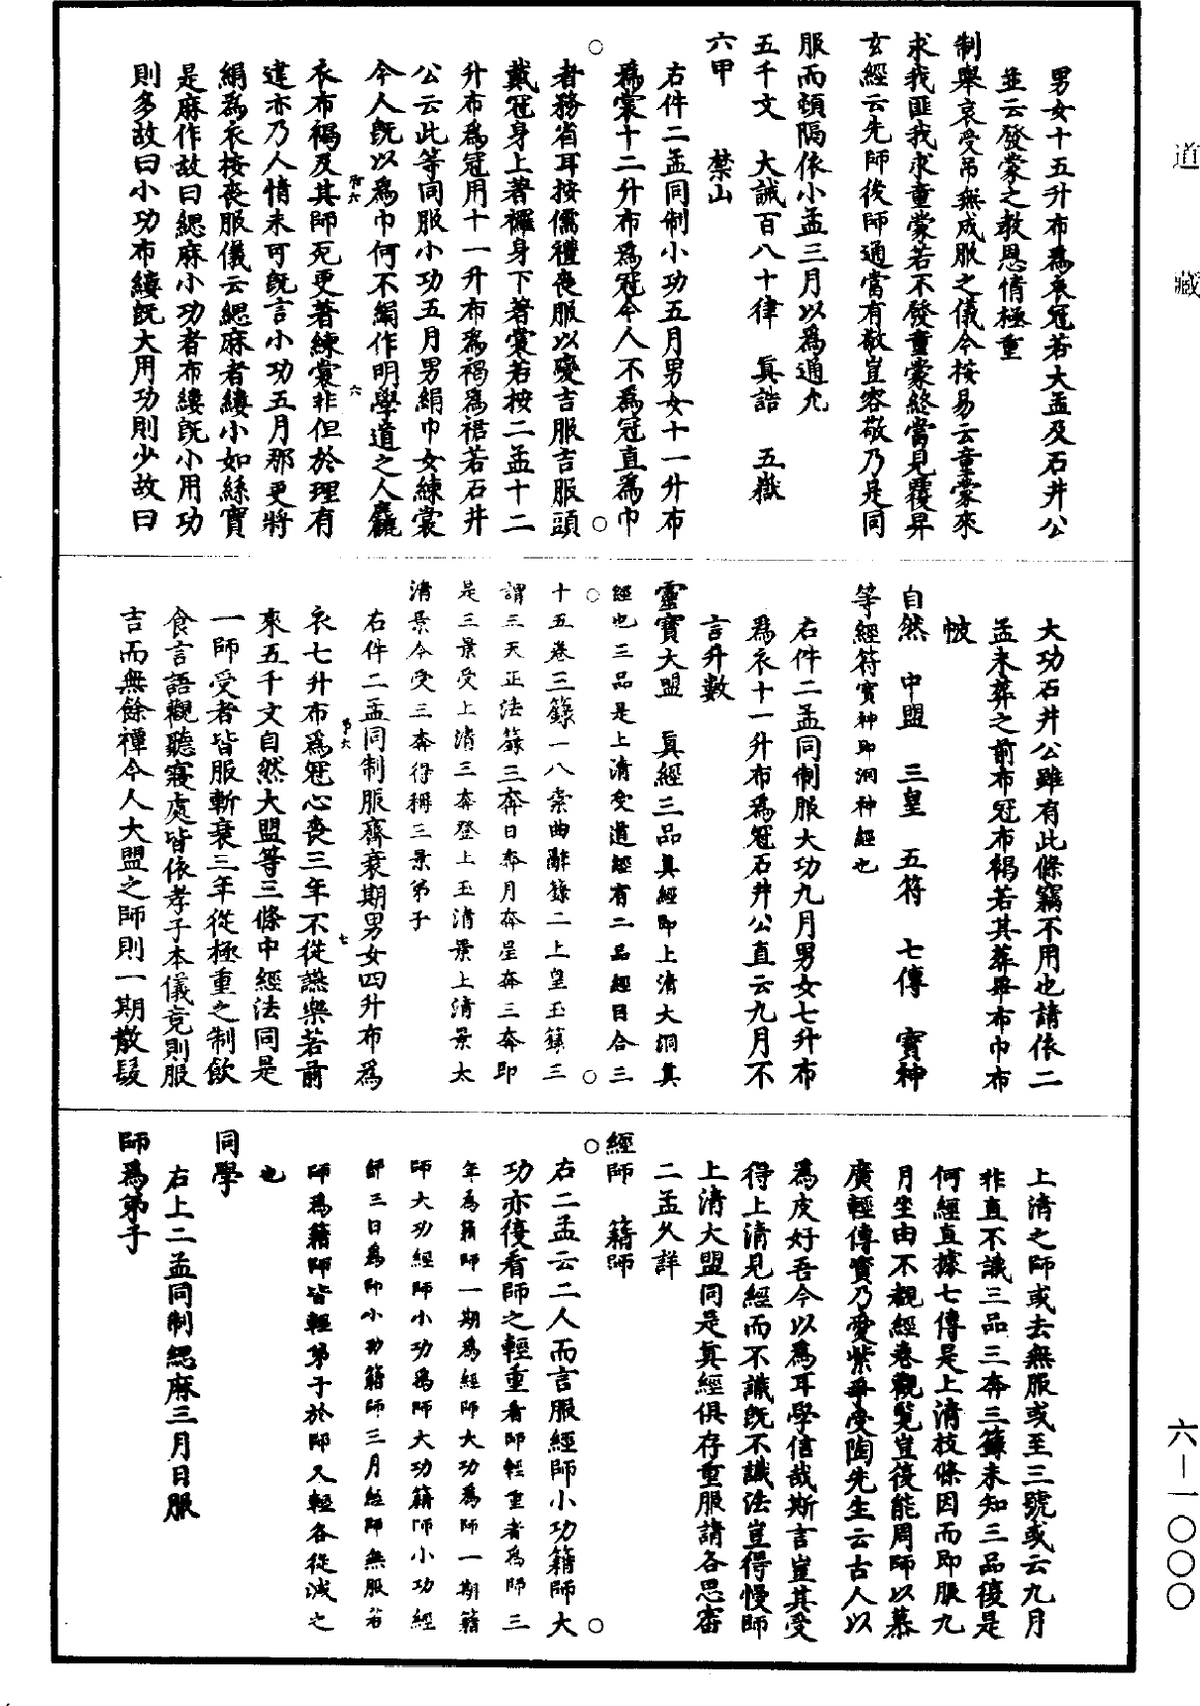 道藏
六—一〇〇〇
男女十五升布爲衰冠若大孟及石井公
並云發蒙之教恩情極重
制舉哀受吊無成服之儀今按易云童蒙來
求我匪我求童蒙若不發童蒙終當見覆昇
玄經云先師後師通當有敬豈容敬乃是同
服而頓隔依小孟三月以爲通允
五千文　大誡百八十律　眞誥　五嶽
六甲　禁山
右件二孟同制小功五月男女十一升布
爲裳十二升布爲冠今人不爲冠直爲巾
者務省耳按儒禮喪服以變吉服吉服頭
戴冠身上著襬身下著裳若按二孟十二
升布爲冠用十一升布爲褐爲裙若石井
公云此等同服小功五月男絹巾女練裳
今人旣以爲巾何不絹作明學道之人麤
衣布褐及其師死更著練裳非但於理有
違亦乃人情未可旣言小功五月那更將
絹爲衣按喪服儀云緦麻者縷小如絲實
是麻作故曰緦麻小功者布縷旣小用功
則多故曰小功布縷旣大用功則少故曰
大功石井公雖有此條竊不用也請依二
孟未葬之前布冠布褐若其葬畢布巾布
帔
自然　中盟　三皇　五符　七傳　寶神
等經符寶神即洞神經也
右件二孟同制服大功九月男女七升布
爲衣十一升布爲冠石井公直云九月不
言升數
靈寶大盟　眞經三品眞經即上清大洞眞
經也三品是上清受道經有二品經目合三
十五卷三籙一八素曲辭籙二上皇玉籙三
謂三天正法籙三奔日奔月奔星奔三奔即
是三景受上清三奔登上玉清景上清景太
清景今受三奔得稱三景弟子
右件二孟同制服齊衰期男女四升布爲
衣七升布爲冠心喪三年不從讌樂若前
來五千文自然大盟等三條中經法同是
一師受者皆服斬衰三年從極重之制飮
食言語觀聽寢處皆依孝子本儀竟則服
吉而無餘禫今人大盟之師則一期散髮
上清之師或去無服或至三號或云九月
非直不識三品三奔三籙未知三品復是
何經直據七傳是上清技條因而即服九
月坐由不覩經卷觀覽豈復能周師以慕
廣輕傳實乃愛紫爭受陶先生云古人以
爲皮好吾今以爲耳學信哉斯言豈其受
得上清見經而不識旣不識法豈得慢師
上清大盟同是眞經俱存重服請各思審
二孟久詳
經師　籍師
右二孟云二人而言服經師小功籍師大
功亦復看師之輕重看師輕重者爲師三
年爲籍師一期爲經師大功爲師一期籍
師大功經師小功爲師大功籍師小功經
師三日爲師小功籍師三月經師無服若
師爲籍師皆輕弟子於師又輕各從減之
也
同學
右上二孟同制緦麻三月日服
師爲弟子